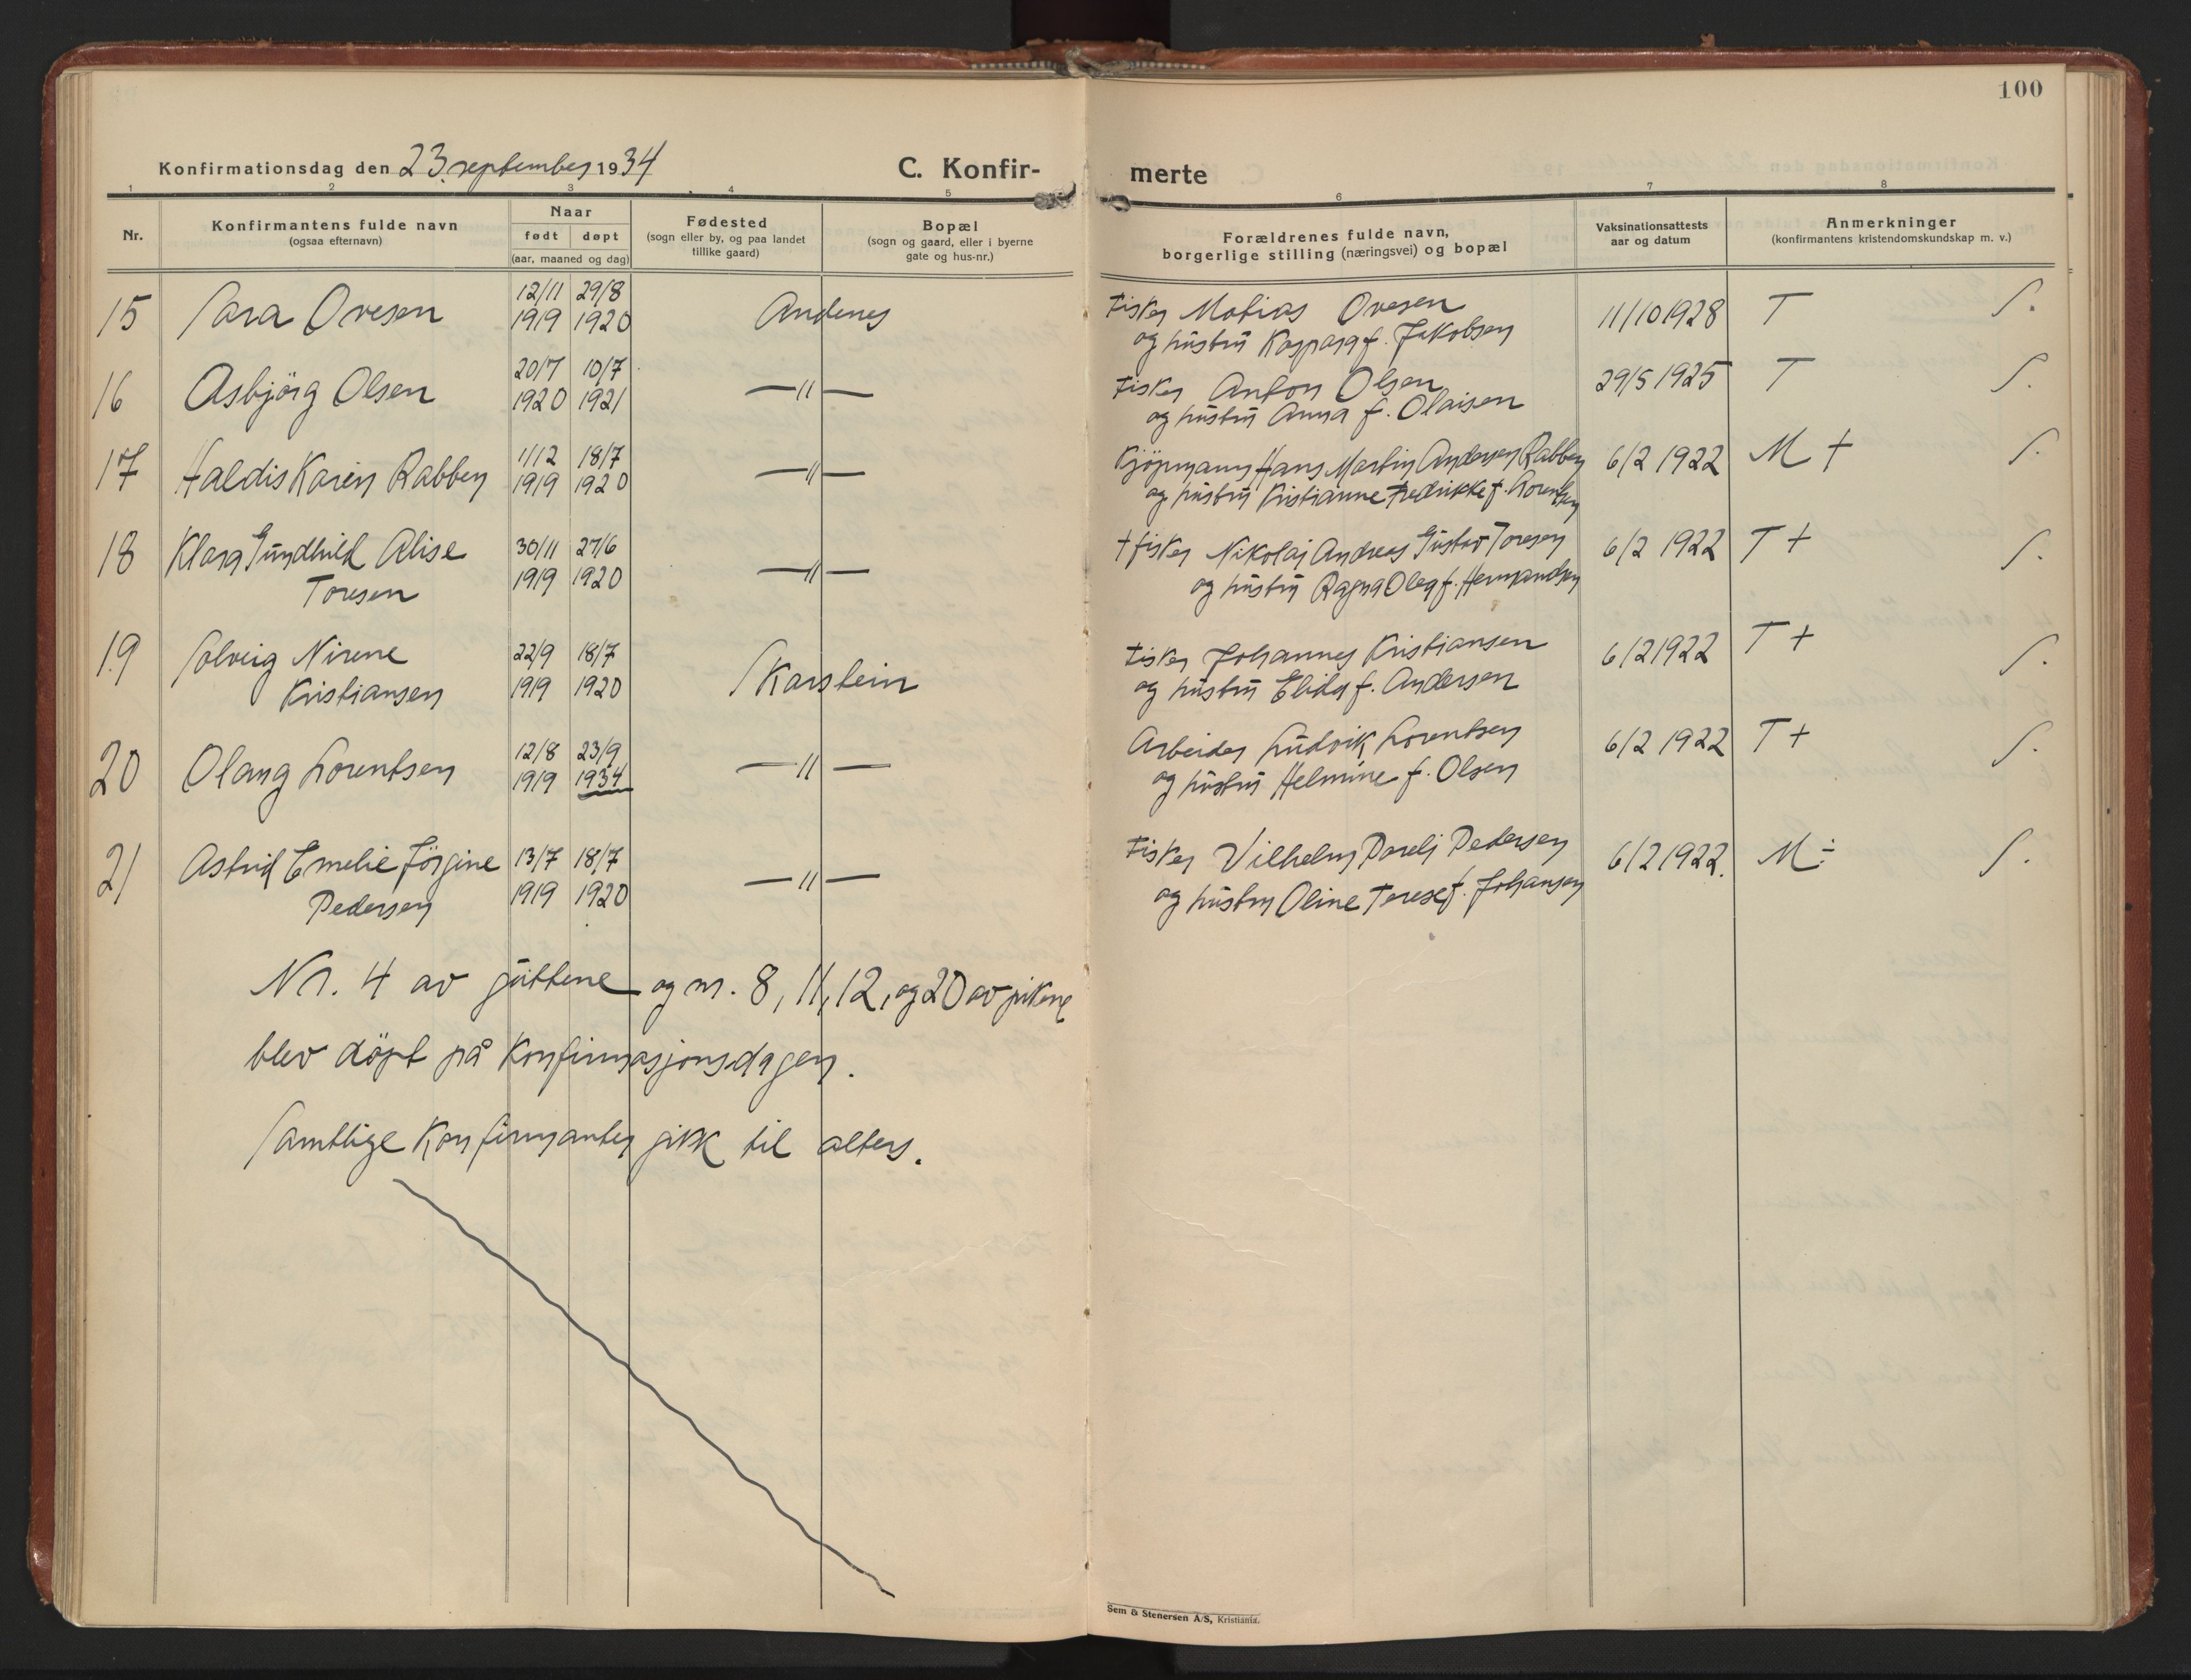 100
Konfirmationsdag den 23. september 1934
C. Konfir-
merte
1 2 3 4 5 6 7 8
Nr.
Konfirmantens fulde navn
(ogsaa efternavn)
Naar
født døpt
(aar, maaned og dag)
Fødested
(sogn eller by, og paa landet
tillike gaard)
Bopæl
(sogn og gaard, eller i byerne
gate og hus-nr.)
Forældrenes fulde navn,
borgerlige stilling (næringsvei) og bopæl
Vaksinationsattests
aar og datum
Anmerkninger
(konfirmantens kristendomskundskap m. v.)
12/11 29/8
15 Sara Ovesen 1919 1920 Andenes
Fisker Mobias Ovesen 11/10 1928 T S.
og hustru Kaspara f. Jakobsen
20/7 10/7
16 Asbjörg Olsen 1920 1921 —"—
Fisker Anton Olsen 29/5 1925 T S.
og hustru Anna f. Olaisen
1/12 18/7
17 Haldis Karen Rabben 1919 1920 —"—
Kjöpmann Hans Martin Andersen Rabben 6/2 1922 M + S.
og hustru Kristianne Fredrikke f. Lorentsen
18 Klara Gundhild Alise 30/11 27/6
Toresen 1919 1920 —"—
+ fisker Nikolai Andreas Gustav Toresen 6/2 1922 T + S.
og hustru Ragna Olea f. Hermandsen
19 Solveig Nirene 22/9 18/7
Kristiansen 1919 1920 Skarstein
Fisker Johannes Kristiansen 6/2 1922 T + S.
og hustru Elida f. Andersen
12/8 23/9
20 Olaug Lorentsen 1919 1934 —"—
Arbeider Ludvik Lorentsen 6/2 1922 T + S.
og hustru Helmine f. Olsen
21 Astrid Emelie Jörgine 13/7 18/7
Pedersen 1919 1920 —"—
Fisker Vilhelm Pareli Pedersen 6/2 1922. M ÷ S.
og hustru Oline Terese f. Johansen
Nr. 4 av guttene og nr. 8, 11, 12, og 20 av pikene
blev döpt på konfirmasjonsdagen.
Samtlige konfirmanter gikk til alters.
Sem & Stenersen A/S, Kristiania.